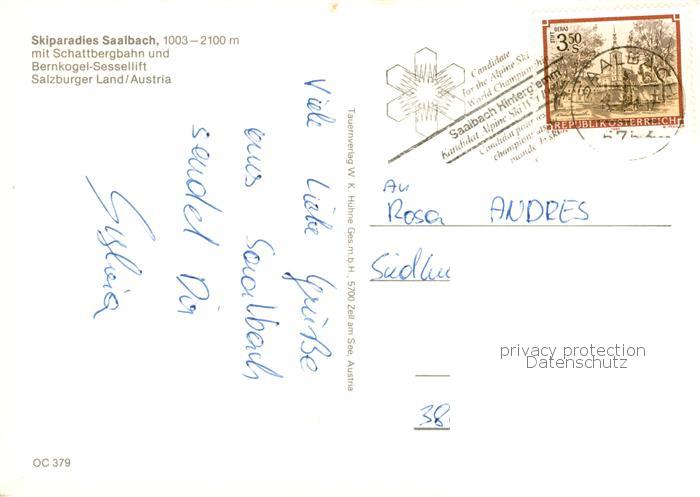 Skiparadies Saalbach, 1003–2100 m
mit Schattbergbahn und
Bernkogel-Sessellift
Salzburger Land/Austria
Viele liebe Grüße
aus Saalbach
sendet Dir
Sylvia
Tauernverlag W. K. Hühne Ges.m.b.H., 5700 Zell am See, Austria
Candidate
for the Alpine Ski
World Championship
Saalbach Hinterglemm
Kandidat Alpine Ski
Candidat pour
STIFT GERAS
3.50 S
REPUBLIK ÖSTERREICH
SAALBACH
An
Rosa ANDRES
privacy protection
Datenschutz
38
OC 379